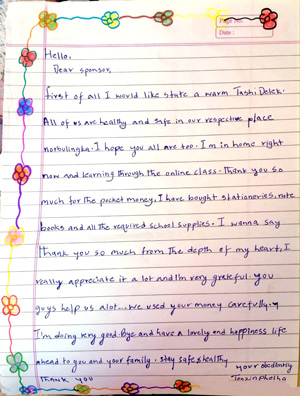 Page No:
Date:
Hello,
Dear sponsor,
first of all I would like state a warm Tashi Delek.
All of us are healthy and safe in our respective place
norbulingka. I hope you all are too. I'm in home right
now and learning through the online class. Thank you so
much for the pocket money, I have bought stationeries, note
books and all the required school supplies. I wanna say
thank you so much from the depth of my heart, I
really appreciate it a lot and I'm very grateful. you
guys help us alot... we used your money carefully.
I'm doing very good. Bye and have a lovely and happiness life
ahead to you and your family. stay safe & healthy
your obediently
Thank you Tenzin Phelha